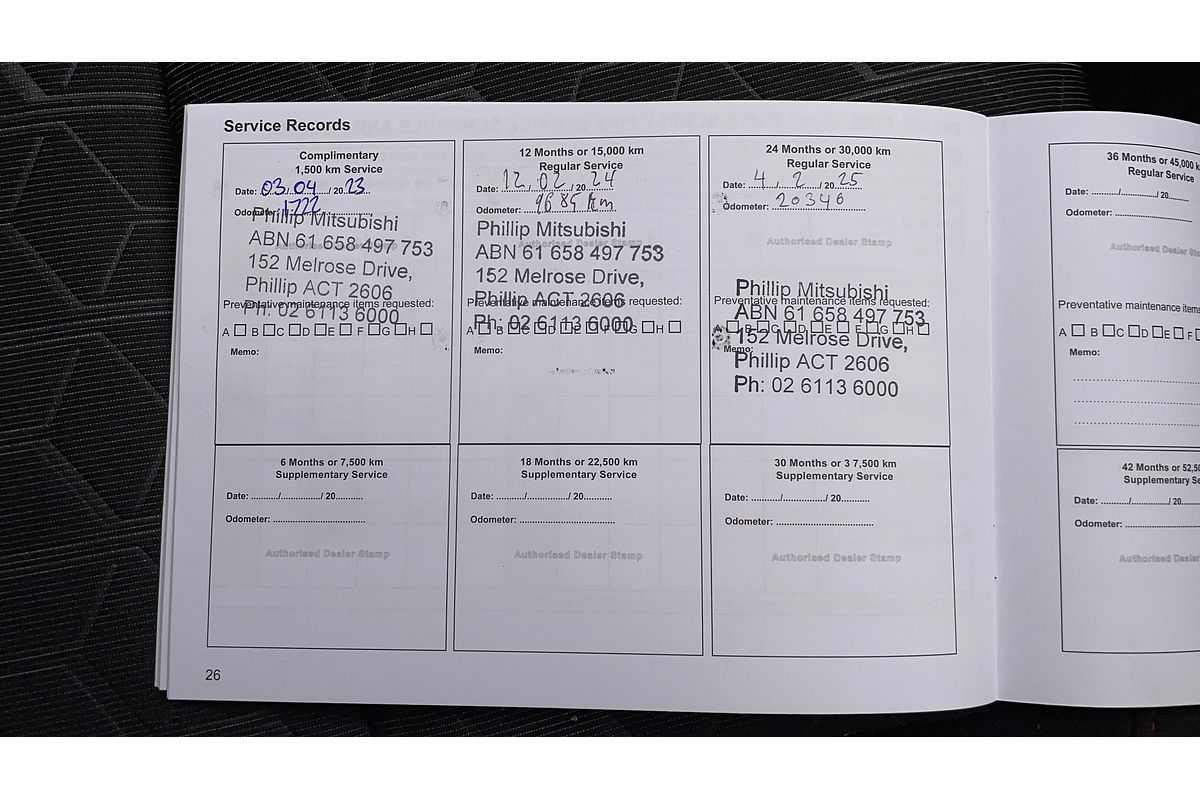 Service Records
Complimentary
1,500 km Service
Date: 03/04/2023
Odometer: 1722
Authorised Dealer Stamp
Phillip Mitsubishi
ABN 61 658 497 753
152 Melrose Drive,
Phillip ACT 2606
Ph: 02 6113 6000
Preventative maintenance items requested:
A B C D E F G H
Memo:
12 Months or 15,000 km
Regular Service
Date: 12/02/2024
Odometer: 9685 km
Authorised Dealer Stamp
Phillip Mitsubishi
ABN 61 658 497 753
152 Melrose Drive,
Phillip ACT 2606
Ph: 02 6113 6000
Preventative maintenance items requested:
A B C D E F G H
Memo:
24 Months or 30,000 km
Regular Service
Date: 4/2/2025
Odometer: 20346
Authorised Dealer Stamp
Phillip Mitsubishi
ABN 61 658 497 753
152 Melrose Drive,
Phillip ACT 2606
Ph: 02 6113 6000
Preventative maintenance items requested:
A B C D E F G H
Memo:
36 Months or 45,000 k
Regular Service
Date: ........./............/ 20......
Odometer: ..............................
Authorised Dealer
Preventative maintenance items
A B C D E F
Memo:
6 Months or 7,500 km
Supplementary Service
Date: ........../.............../ 20..........
Odometer: ...................................
Authorised Dealer Stamp
18 Months or 22,500 km
Supplementary Service
Date: ........../.............../ 20..........
Odometer: ...................................
Authorised Dealer Stamp
30 Months or 3 7,500 km
Supplementary Service
Date: ........../.............../ 20..........
Odometer: ...................................
Authorised Dealer Stamp
42 Months or 52,50
Supplementary Se
Date: ........../.............../ 20.....
Odometer: ..............................
Authorised Dealer
26